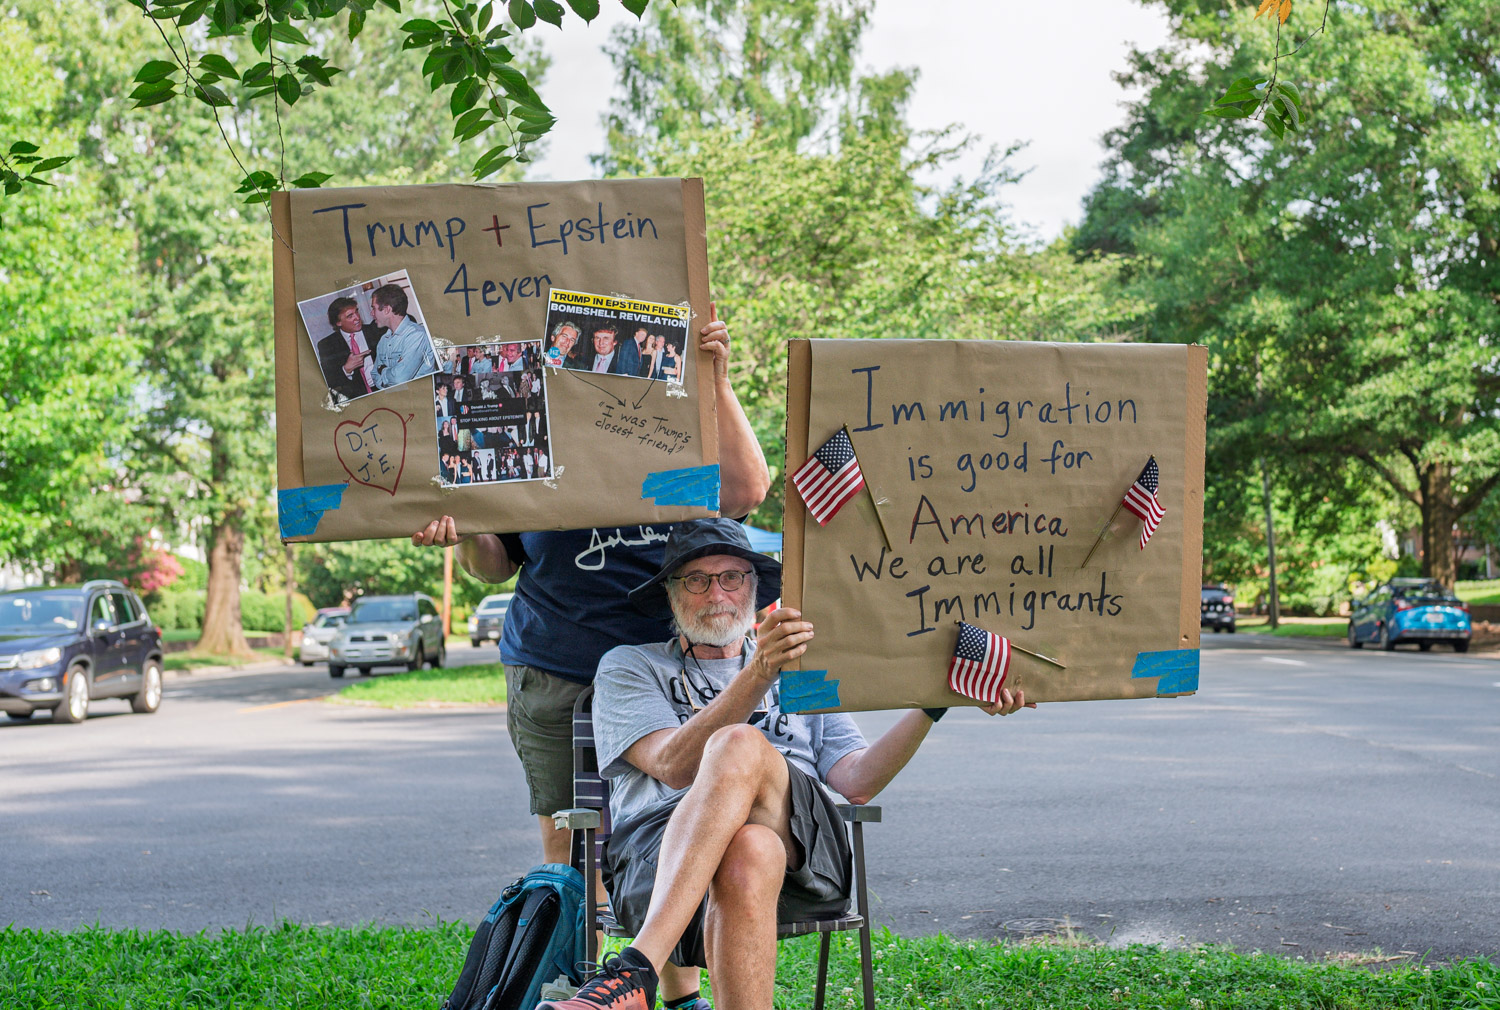 Trump + Epstein
4ever
TRUMP IN EPSTEIN FILES?
BOMBSHELL REVELATION
Donald J. Trump
STOP TALKING ABOUT EPSTEIN!!!
"I was Trump's
closest friend"
D.T.
+
J.E.
Immigration
is good for
America
We are all
Immigrants